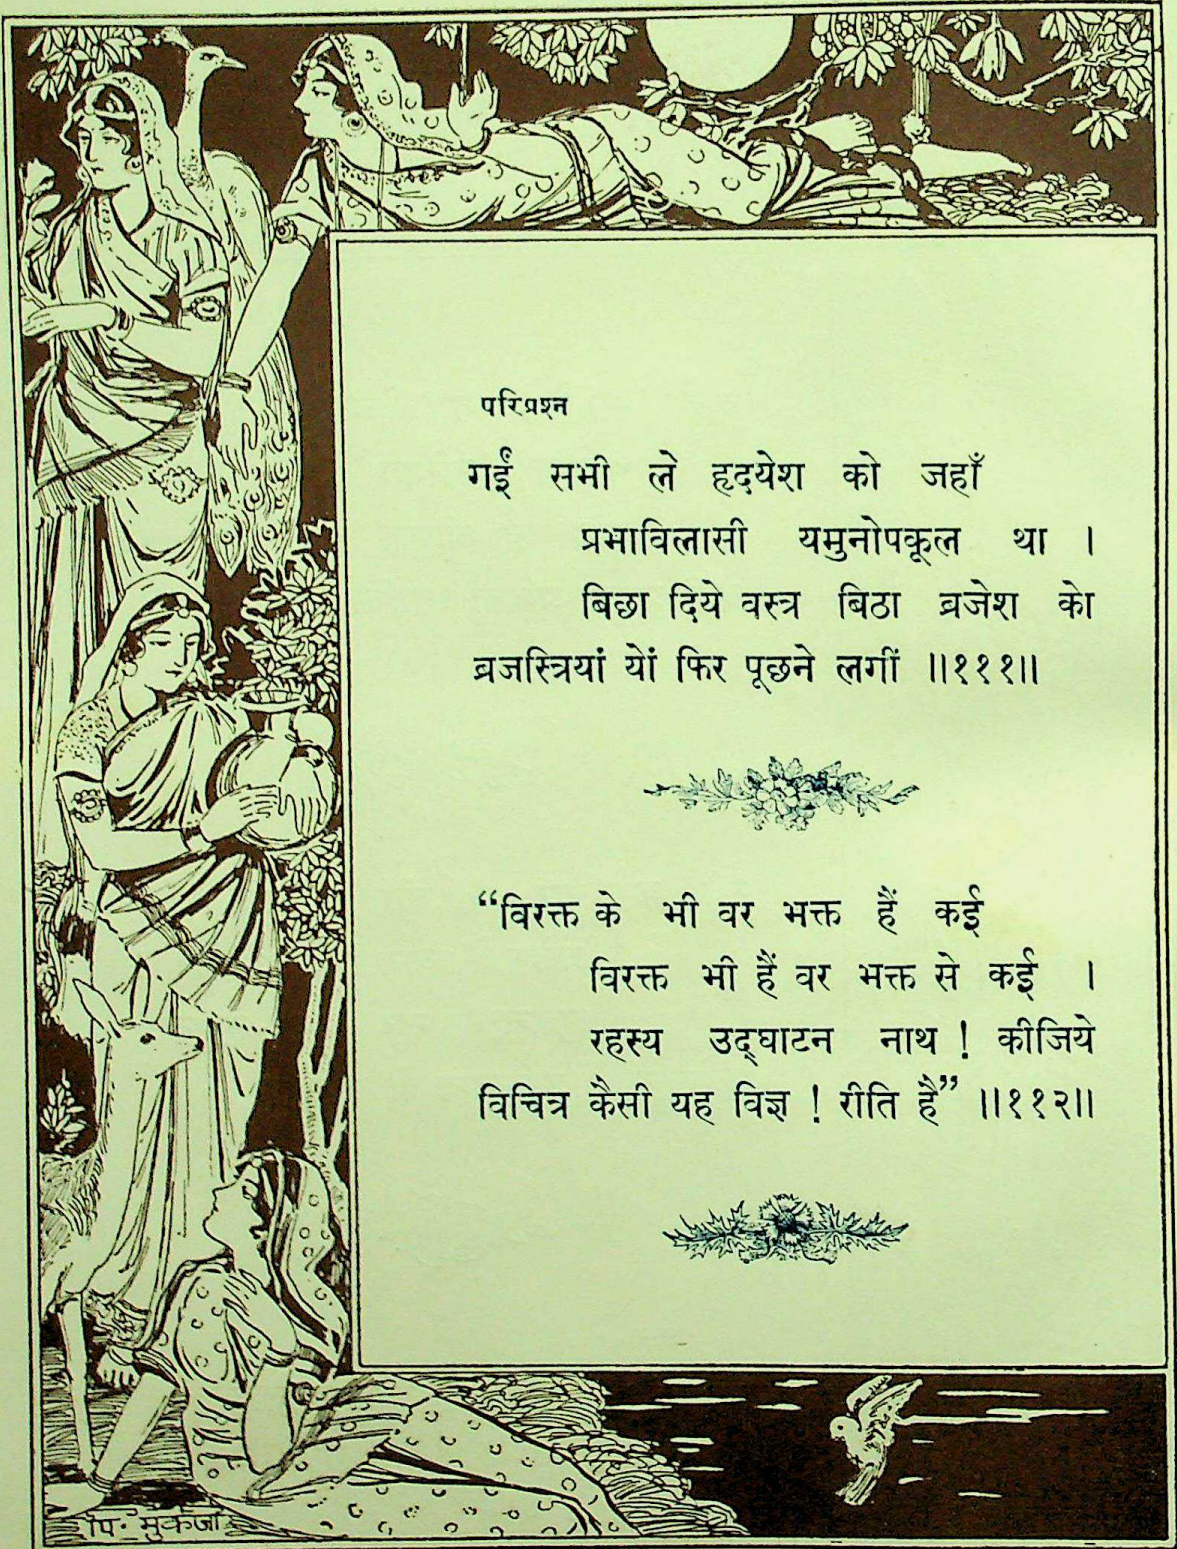 परिप्रश्न
गईं सभी ले हृदयेश को जहाँ
प्रभाविलासी यमुनोपकूल था ।
बिछा दिये वस्त्र बिठा ब्रजेश को
ब्रजस्त्रियां यों फिर पूछने लगीं ॥१११॥
“विरक्त के भी वर भक्त हैं कई
विरक्त भी हैं वर भक्त से कई ।
रहस्य उद्‌घाटन नाथ ! कीजिये
विचित्र कैसी यह विज्ञ ! रीति है” ॥११२॥
पि. मुकर्जी